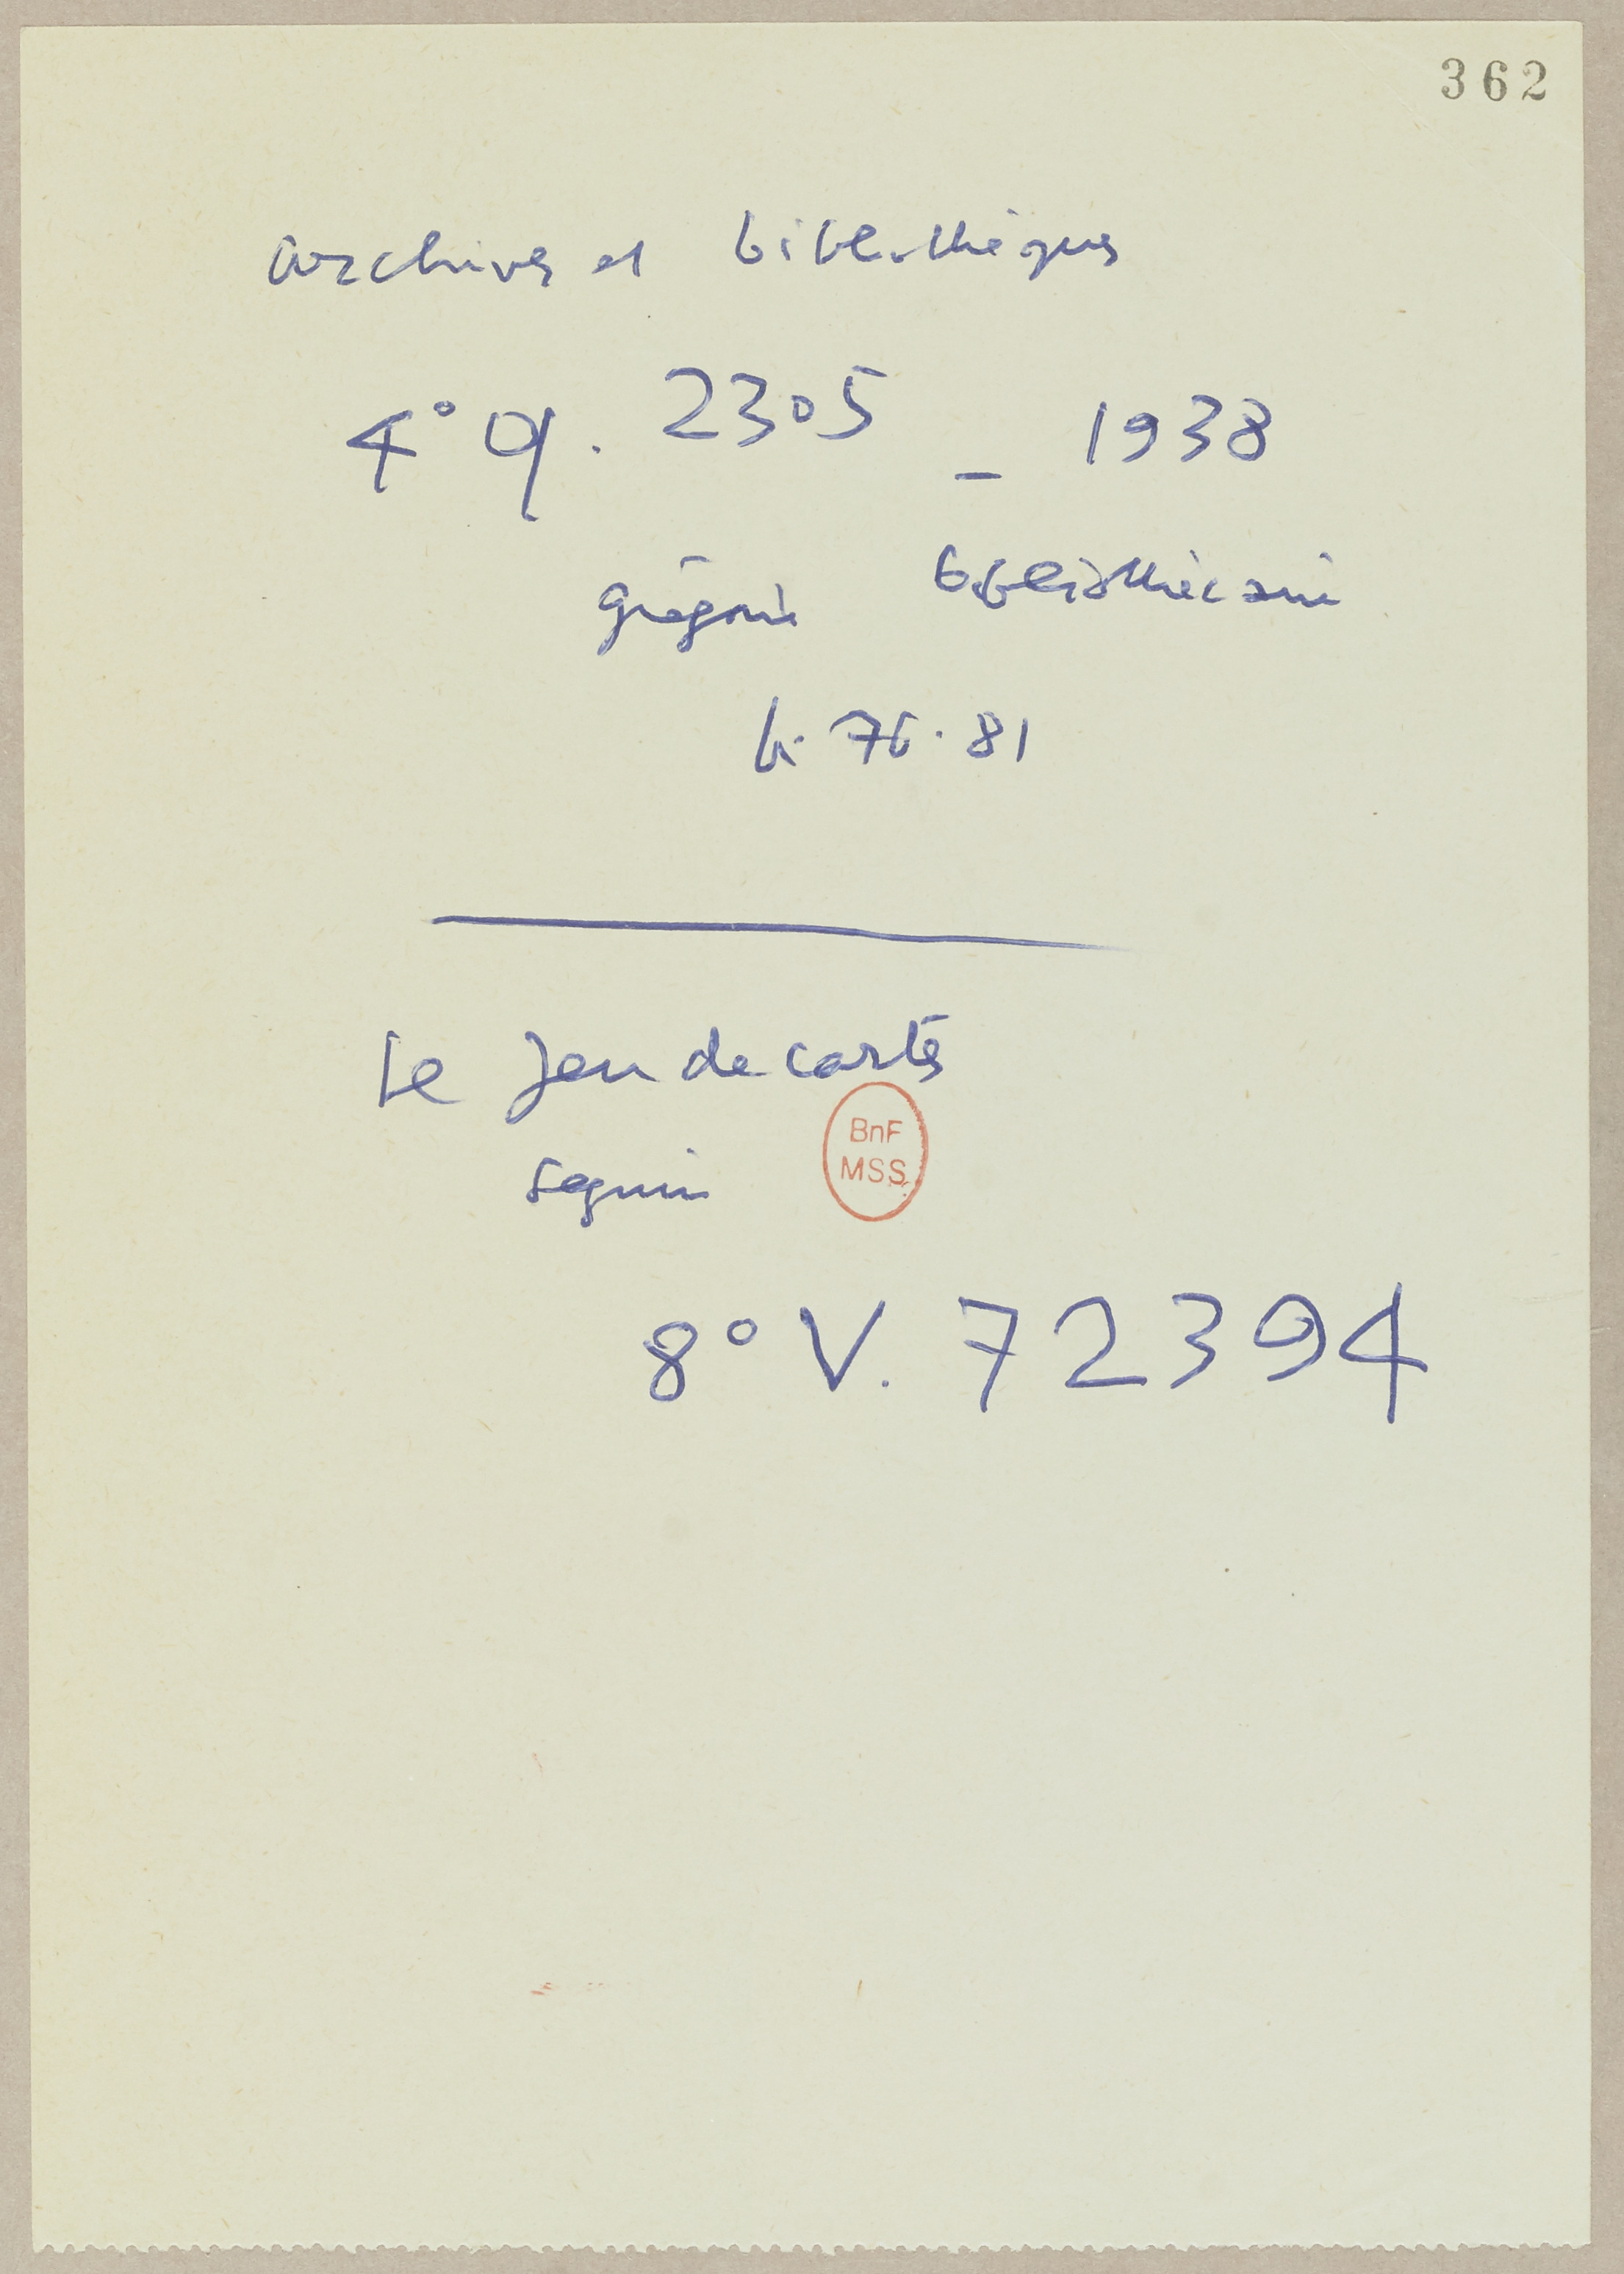 362
archives et bibliothèques
4° Q. 2305 _ 1938
grégoire bibliothécaire
p. 76. 81
Le Jeu de cartes
BnF
MSS
seguin
8° V. 72394